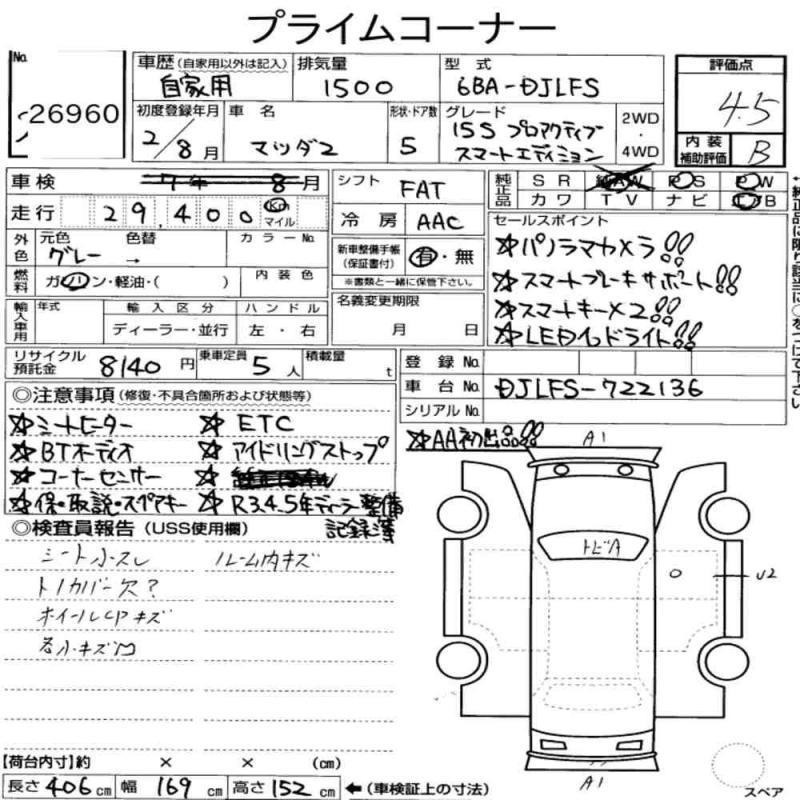 プライムコーナー
No.
26960
車歴 (自家用以外は記入) 自家用
排気量 1500
型式 6BA-DJLFS
評価点 4.5
初度登録年月 2/8月
車名 マツダ2
形状・ドア数 5
グレード 15S プロアクティブ スマートエディション
2WD・4WD
内装補助評価 B
車検 7年 8月
走行 29,400 Km マイル
シフト FAT
冷房 AAC
純正品 SR AW PS PW
カワ TV ナビ エアB
外色 元色 グレー 色替 → カラーNo.
燃料 ガソリン・軽油・( ) 内装色
新車整備手帳(保証書付) 有・無
※書類と一緒に保管下さい。
セールスポイント
☆パノラマカメラ!!
☆スマートブレーキサポート!!
☆スマートキー×2!!
☆LEDヘッドライト!!
輸入車用 年式 輸入区分 ハンドル
ディーラー・並行 左・右
名義変更期限 月 日
リサイクル預託金 8140円 乗車定員 5人 積載量 t
登録No.
車台No. DJLFS-722136
シリアルNo.
◎注意事項 (修復・不具合箇所および状態等)
☆シートヒーター ☆ETC
☆BTオーディオ ☆アイドリングストップ
☆コーナーセンサー ☆
☆保・取説・スペアキー ☆R3.4.5年ディーラー整備記録簿
☆AA初出品!!
◎検査員報告 (USS使用欄)
シート小スレ ルーム内キズ
トノカバー欠?
ホイールCPキズ
各小キズ凹
A1
トビA
U2
A1
スペア
【荷台内寸】約 × × (cm)
長さ 406cm 幅 169cm 高さ 152cm ←(車検証上の寸法)